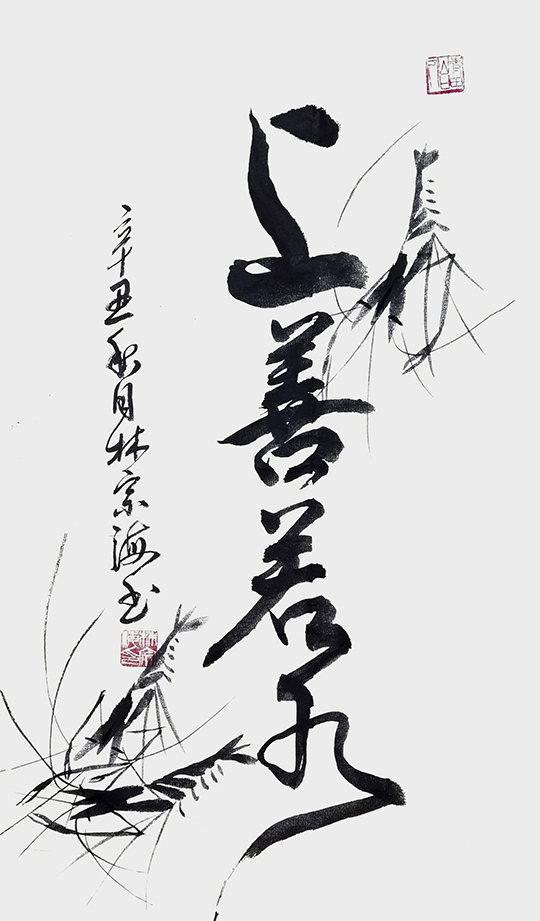 上善若水
辛丑秋月林宗海书